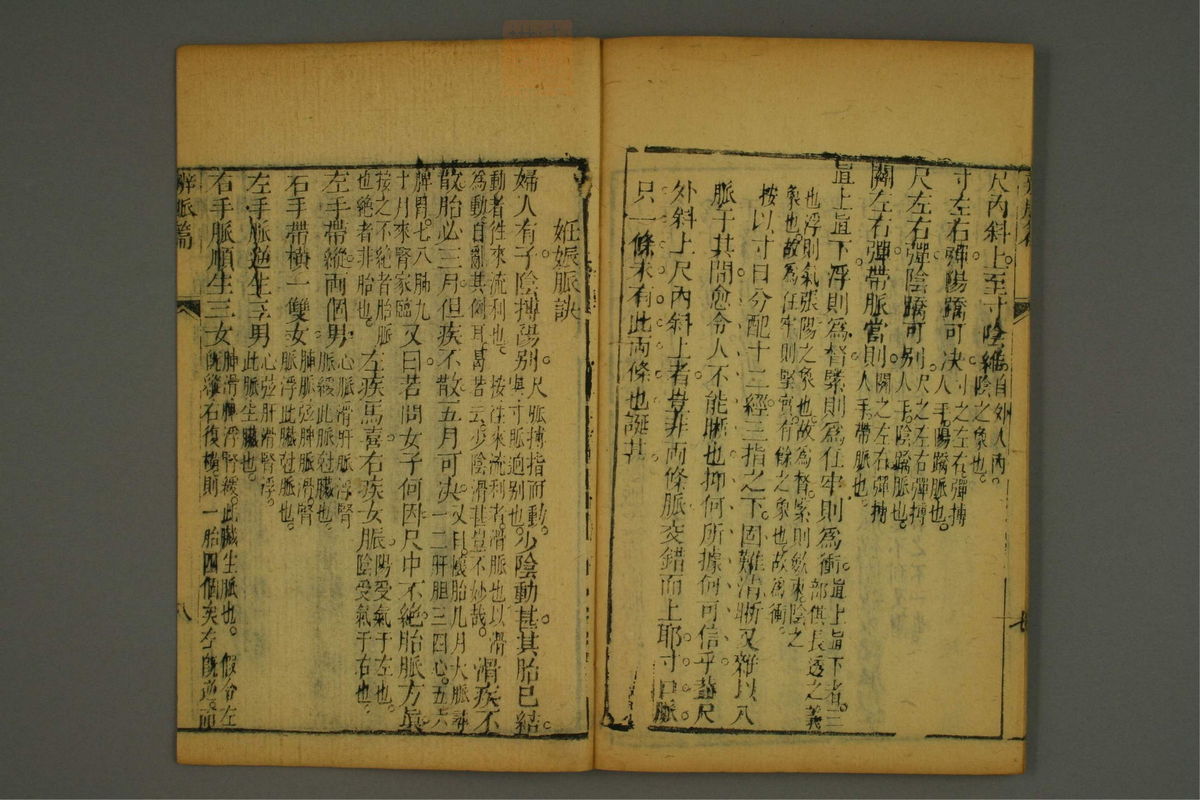 尺內斜上至寸陰維自外入內。陰之象也。
寸左右彈陽蹻可决寸之左右彈搏人手。陽蹻脈也。
尺左右彈陰蹻可別尺之左右彈搏人手。陰蹻脈也。
關左右彈帶脈當則關之左右彈搏人手。帶脈也。
直上直下浮則爲督緊則爲任牢則爲衝。直上直下者。三部俱長透之義
也浮則氣張陽之象也。故爲督。緊則斂束陰之
象也。故爲任牢則堅實。有餘之象也故爲衝。
按以寸口分配十二經三指之下。固難清晰又雜以八
脈于其間愈令人不能晰也抑何所據何可信乎葢尺
外斜上尺內斜上者豈非兩條脈交錯而上耶寸口脈
只一條未有此兩條也誕甚
七
妊娠脈訣
婦人有子陰搏陽别。尺脈搏指而動。與寸脈逈别也。少陰動甚其胎已結。
動者徃來流利也。按徃來流利者滑脈也以滑
爲動。自亂其例耳。曷若云。少陰滑甚豈不妙哉。滑疾不
散胎必三月但疾不散五月可决。又曰。懷胎几月大脈尋一二肝胆三四心。五六
脾胃。七八肺九
十月來腎家臨又曰若問女子何因尺中不絶胎脈方眞。
按之不絶者胎脈
也絶者非胎也。左疾爲喜右疾女脈陽受氣于左也。陰受氣于右也。
左手帶縱兩個男。心脈滑肝脈浮腎脈緩此脈尅臟也。
右手帶橫一雙女。肺脈弦脾脈滑腎脈浮此臟尅脈也。
左手脈逆生三男心弦肝滑腎浮。此脈生臟也。
右手脈順生三女肺滑脾浮腎緩。此臟生脈也。假令左既縱右復橫。則一胎四個矣左既逆。而
辨脈篇
八